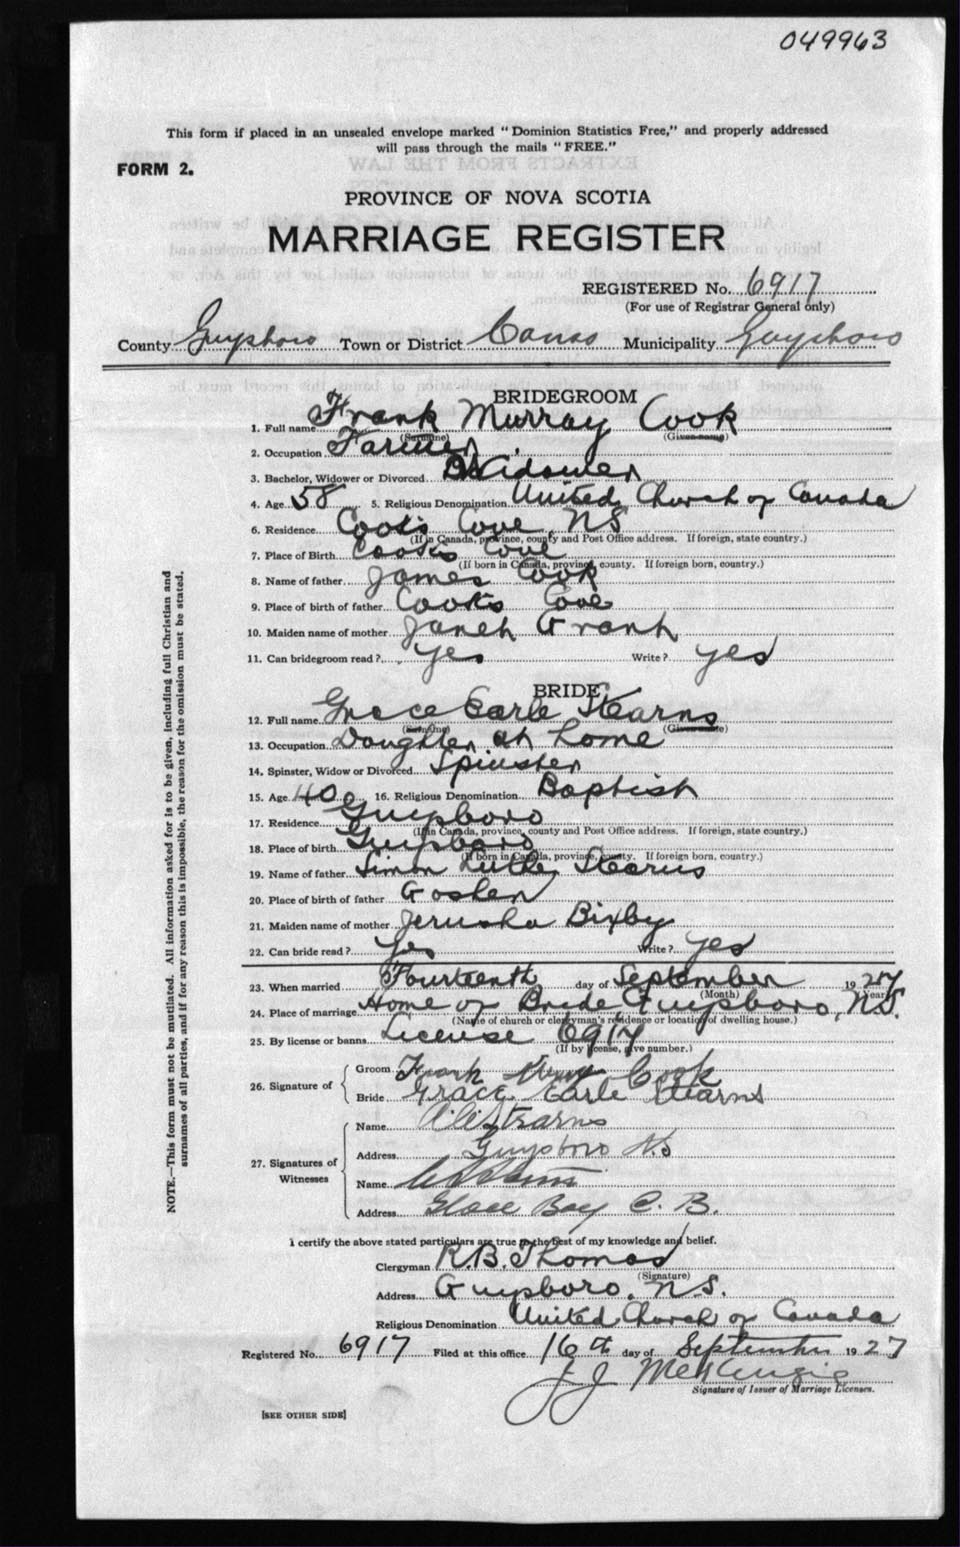 049963
This form if placed in an unsealed envelope marked "Dominion Statistics Free," and properly addressed
will pass through the mails "FREE."
FORM 2.
PROVINCE OF NOVA SCOTIA
MARRIAGE REGISTER
REGISTERED No. 6917
(For use of Registrar General only)
County Guysboro Town or District Canso Municipality Guysboro
BRIDEGROOM
1. Full name Frank Murray Cook
(Surname) (Given name)
2. Occupation Farmer
3. Bachelor, Widower or Divorced Widower
4. Age 58 5. Religious Denomination United Church of Canada
6. Residence Cook's Cove, NS
(If in Canada, province, county and Post Office address. If foreign, state country.)
7. Place of Birth Cook's Cove
(If born in Canada, province, county. If foreign born, country.)
8. Name of father James Cook
9. Place of birth of father Cook's Cove
10. Maiden name of mother Janet Grant
11. Can bridegroom read? yes Write? yes
BRIDE
12. Full name Grace Earle Stearns
(Surname) (Given name)
13. Occupation Daughter at home
14. Spinster, Widow or Divorced Spinster
15. Age 40 16. Religious Denomination Baptist
17. Residence Guysboro
(If in Canada, province, county and Post Office address. If foreign, state country.)
18. Place of birth Guysboro
(If born in Canada, province, county. If foreign born, country.)
19. Name of father Simon Luther Stearns
20. Place of birth of father Goshen
21. Maiden name of mother Jerusha Bixby
22. Can bride read? Yes Write? Yes
23. When married Fourteenth day of September 1927
(Month) (Year)
24. Place of marriage Home of Bride Guysboro, N.S.
(Name of church or clergyman's residence or location of dwelling house.)
25. By license or banns License 6917
(If by license, give number.)
26. Signature of
Groom Frank Cook
Bride Grace Earle Stearns
27. Signatures of Witnesses
Name Stearns
Address Guysboro N.S
Name
Address Glace Bay C. B.
I certify the above stated particulars are true to the best of my knowledge and belief.
Clergyman R.B. Thomas
(Signature)
Address Guysboro, N.S.
Religious Denomination United Church of Canada
Registered No. 6917 Filed at this office 16th day of September 1927
J J McKenzie
Signature of Issuer of Marriage Licenses.
[SEE OTHER SIDE]
NOTE.—This form must not be mutilated. All information asked for is to be given, including full Christian and
surnames of all parties, and if for any reason this is impossible, the reason for the omission must be stated.